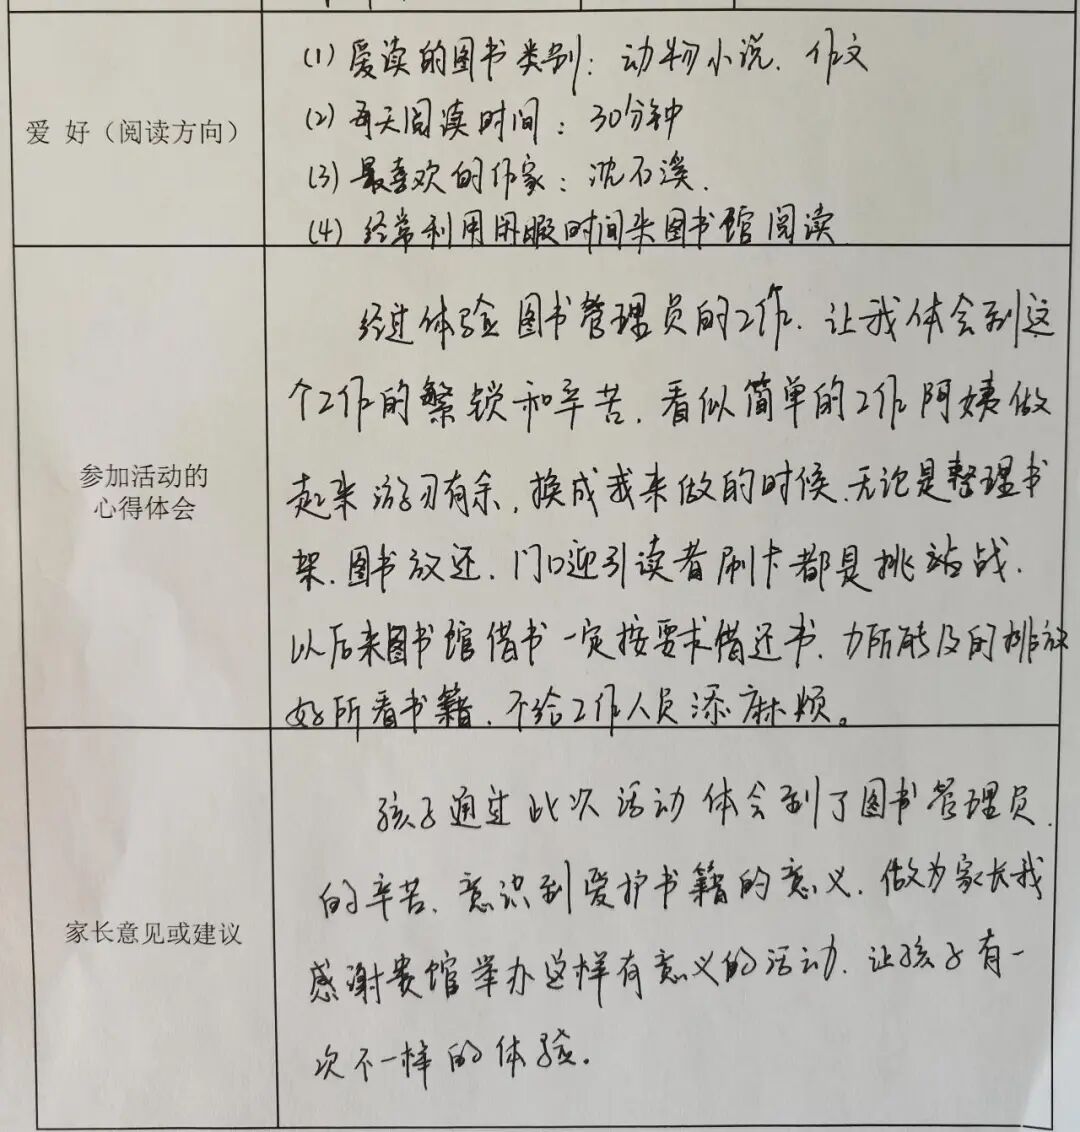 爱 好（阅读方向）
(1) 爱读的图书类别：动物小说、作文
(2) 每天阅读时间：30分钟
(3) 最喜欢的作家：沈石溪.
(4) 经常利用闲暇时间来图书馆阅读
参加活动的
心得体会
经过体验图书管理员的工作、让我体会到这
个工作的繁锁和辛苦、看似简单的工作阿姨做
起来游刃有余，换成我来做的时候、无论是整理书
架、图书放还、门口迎引读者刷卡都是挑战、
以后来图书馆借书一定按要求借还书、力所能及的排放
好所看书籍、不给工作人员添麻烦。
家长意见或建议
孩子通过此次活动体会到了图书管理员
的辛苦、意识到爱护书籍的意义、做为家长我
感谢贵馆举办这样有意义的活动、让孩子有一
次不一样的体验。